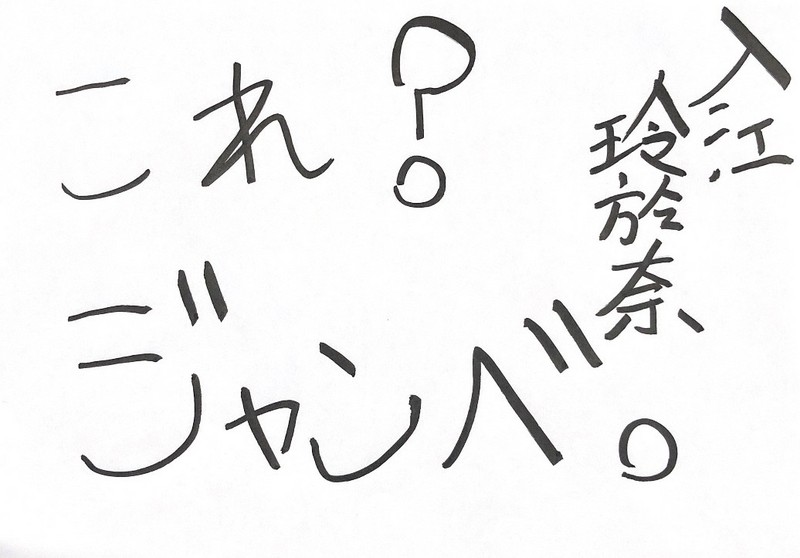 これ?
ジャンベ。
入江
玲於奈